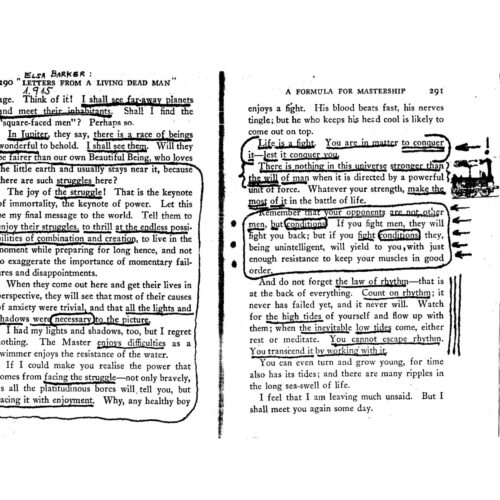 ELSA BARKER:
290 "LETTERS FROM A LIVING DEAD MAN"
1.915
age. Think of it! I shall see far-away planets
and meet their inhabitants. Shall I find the
"square-faced men"? Perhaps so.
In Jupiter, they say, there is a race of beings
wonderful to behold. I shall see them. Will they
be fairer than our own Beautiful Being, who loves
the little earth and usually stays near it, because
there are such struggles here?
The joy of the struggle! That is the keynote
of immortality, the keynote of power. Let this
be my final message to the world. Tell them to
enjoy their struggles, to thrill at the endless possi-
bilities of combination and creation, to live in the
moment while preparing for long hence, and not
to exaggerate the importance of momentary fail-
ures and disappointments.
When they come out here and get their lives in
perspective, they will see that most of their causes
of anxiety were trivial, and that all the lights and
shadows were necessary to the picture.
I had my lights and shadows, too, but I regret
nothing. The Master enjoys difficulties as a
swimmer enjoys the resistance of the water.
If I could make you realise the power that
comes from facing the struggle—not only bravely,
as all the platitudinous bores will tell you, but
facing it with enjoyment. Why, any healthy boy
A FORMULA FOR MASTERSHIP 291
enjoys a fight. His blood beats fast, his nerves
tingle; but he who keeps his head cool is likely to
come out on top.
Life is a fight. You are in matter to conquer
it—lest it conquer you.
There is nothing in this universe stronger than
the will of man when it is directed by a powerful
unit of force. Whatever your strength, make the
most of it in the battle of life.
Remember that your opponents are not other
men, but conditions. If you fight men, they will
fight you back; but if you fight conditions they,
being unintelligent, will yield to you, with just
enough resistance to keep your muscles in good
order.
And do not forget the law of rhythm—that is
at the back of everything. Count on rhythm; it
never has failed yet, and it never will. Watch
for the high tides of yourself and flow up with
them; when the inevitable low tides come, either
rest or meditate. You cannot escape rhythm.
You transcend it by working with it.
You can even turn and grow young, for time
also has its tides; and there are many ripples in
the long sea-swell of life.
I feel that I am leaving much unsaid. But I
shall meet you again some day.